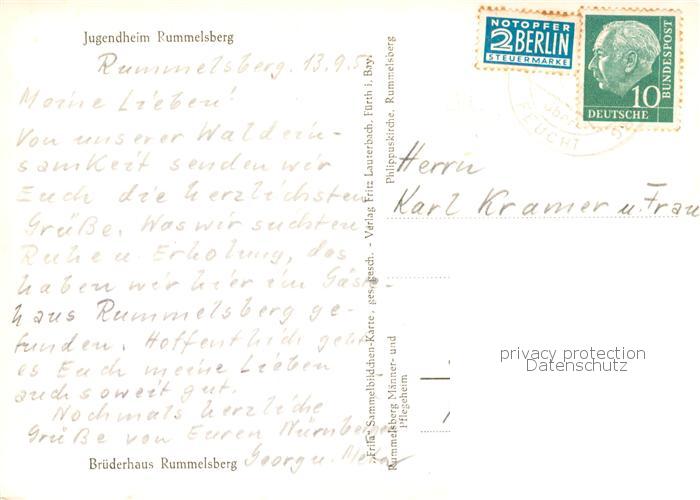 Jugendheim Rummelsberg
Rummelsberg. 13.9.5
Meine Lieben!
Von unserer Waldein-
samkeit senden wir
Euch die herzlichsten
Grüße. Was wir suchten
Ruhe u. Erholung, das
haben wir hier im Gäste-
haus Rummelsberg ge-
funden. Hoffentlich geht
es Euch meine Lieben
auch soweit gut.
Nochmals herzliche
Grüße von Euren Nürnberger
Georg u.
Brüderhaus Rummelsberg
„Frila“ Sammelbildchen-Karte, ges. gesch. - Verlag Fritz Lauterbach, Fürth i. Bay.
Rummelsberg Männer- und
Pflegeheim
Philippuskirche, Rummelsberg
NOTOPFER
2 BERLIN
STEUERMARKE
10
DEUTSCHE
BUNDESPOST
FEUCHT
Herrn
Karl Kramer u. Frau
privacy protection
Datenschutz